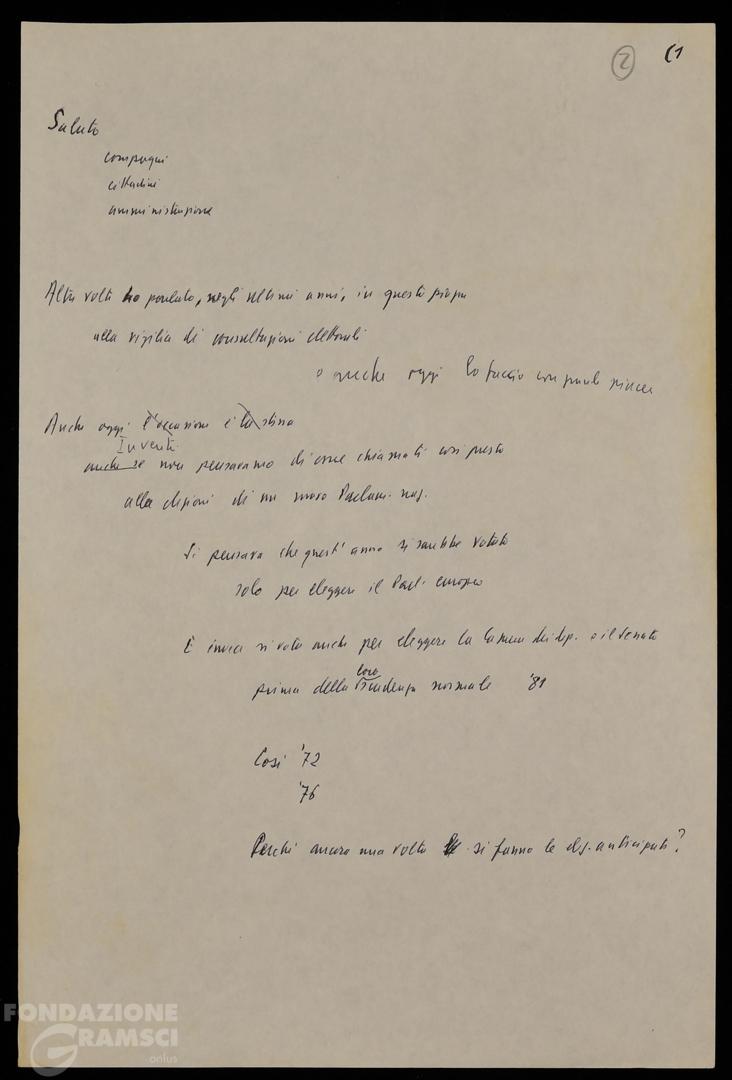 2 (1
Saluto
compagni
cittadini
amministrazione
Altre volte ho parlato, negli ultimi anni, in questa piazza
alla vigilia di consultazioni elettorali
e anche oggi lo faccio con grande piacere
Anche oggi l'occasione è la stessa
Inverti
anche se non pensavamo di esser chiamati così presto
alle elezioni di un nuovo Parlam. naz.
Si pensava che quest'anno si sarebbe votato
solo per eleggere il Parl. europeo
E invece si vota anche per eleggere la Camera dei dep. e il Senato
prima della loro scadenza normale '81
Così '72
'76
Perché ancora una volta si fanno le elez. anticipate?
FONDAZIONE
GRAMSCI
onlus